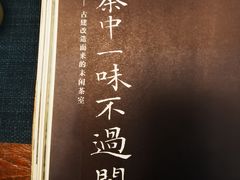 茶中一味不過閒
——古建改造而来的未闲茶室